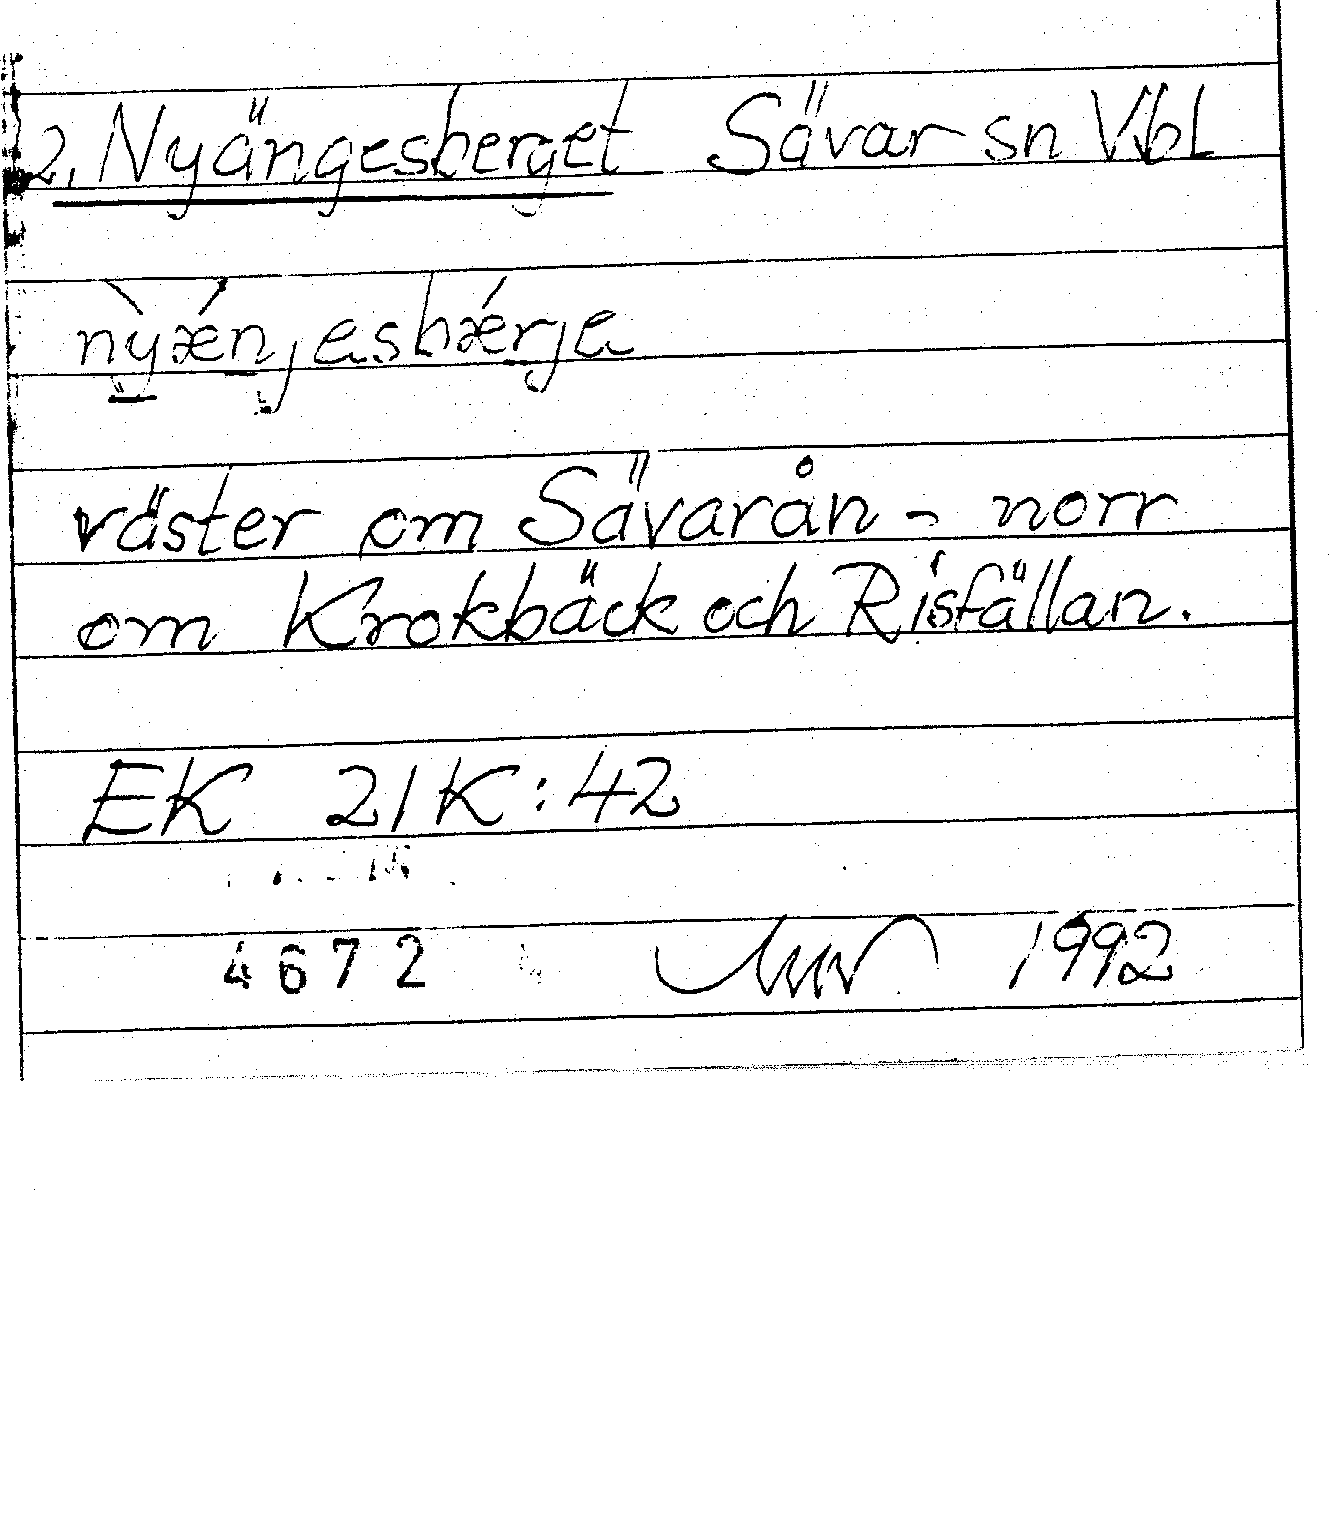 2. Nyängesberget Sävar sn Vbl
nỳǽnjesbǽrje
väster om Sävarån - norr
om Krokbäck och Risfällan.
EK 21K:42
4672 1992